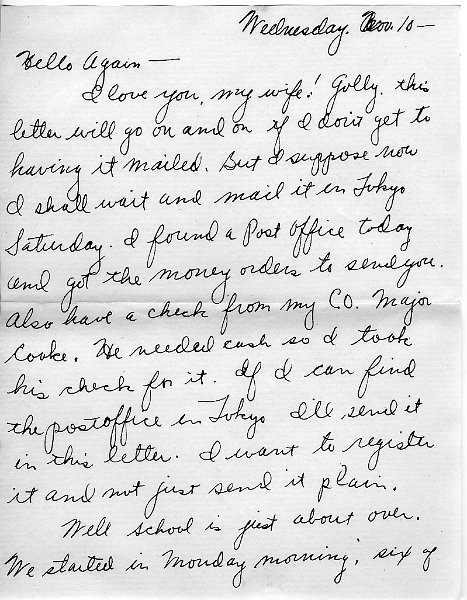 Wednesday. Nov. 10 —
Hello Again —
I love you, my wife! Golly, this
letter will go on and on if I don't get to
having it mailed. But I suppose now
I shall wait and mail it in Tokyo
Saturday. I found a Post Office today
and got the money orders to send you.
Also have a check from my C.O. Major
Cooke. He needed cash so I took
his check for it. If I can find
the postoffice in Tokyo I'll send it
in this letter. I want to register
it and not just send it plain.
Well school is just about over.
We started in Monday morning, six of